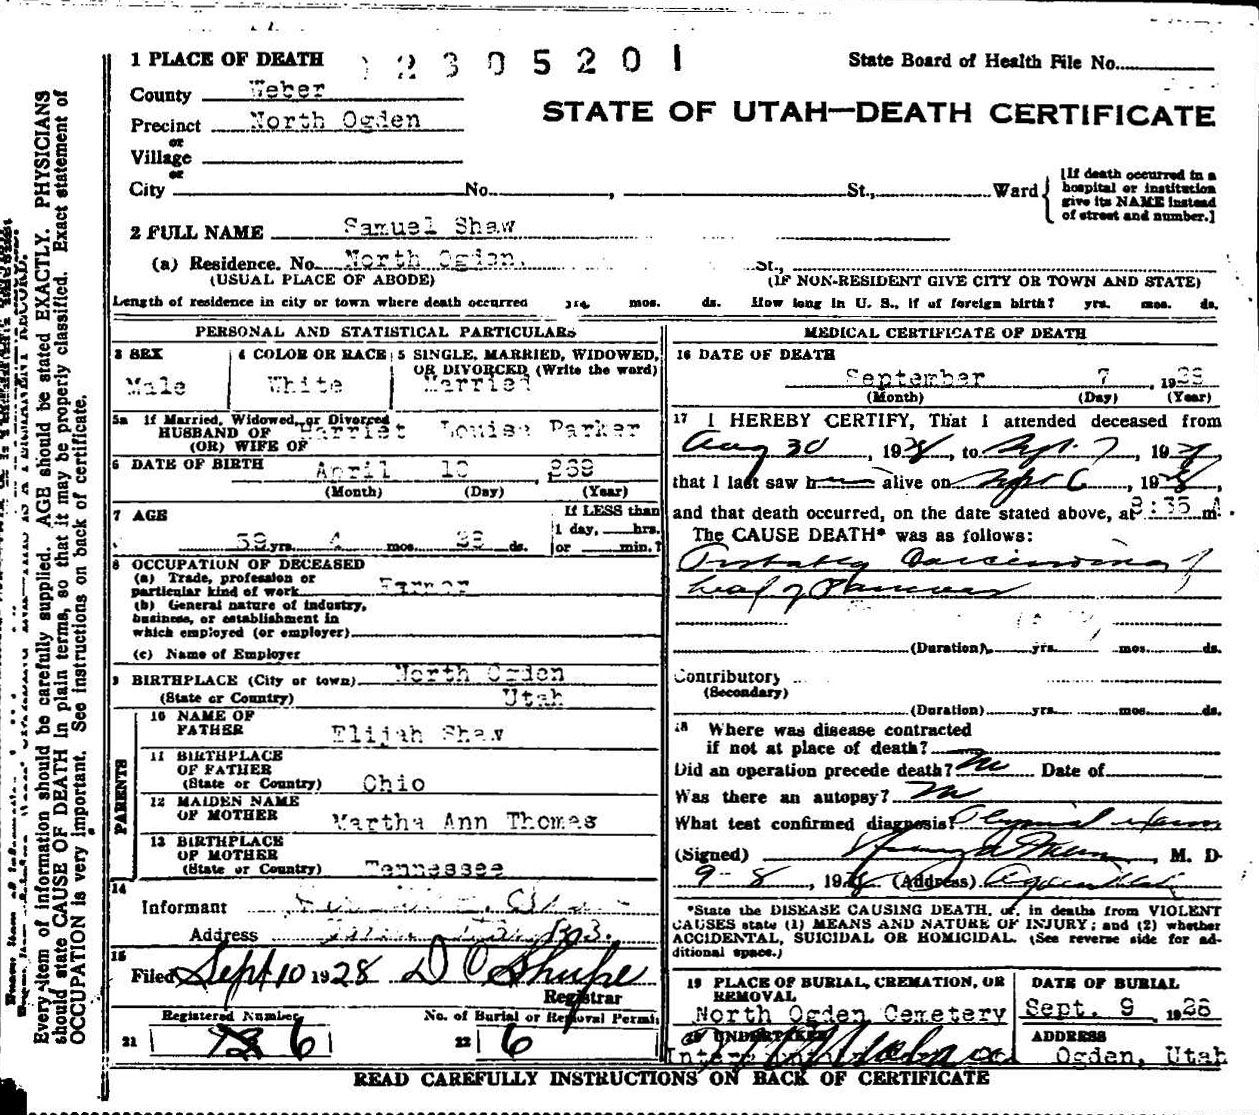 1 PLACE OF DEATH
2305201
State Board of Health File No.
County Weber
STATE OF UTAH—DEATH CERTIFICATE
Precinct North Ogden
or
Village
or
City No. , St., Ward
[If death occurred in a hospital or institution give its NAME instead of street and number.]
2 FULL NAME Samuel Shaw
(a) Residence. No. North Ogden. St.,
(USUAL PLACE OF ABODE) (IF NON-RESIDENT GIVE CITY OR TOWN AND STATE)
Length of residence in city or town where death occurred yrs. mos. ds. How long in U. S., if of foreign birth? yrs. mos. ds.
PERSONAL AND STATISTICAL PARTICULARS
3 SEX
Male
4 COLOR OR RACE
White
5 SINGLE, MARRIED, WIDOWED,
OR DIVORCED (Write the word)
Married
5a If Married, Widowed, or Divorced
HUSBAND OF Harriet Louise Parker
(OR) WIFE OF
6 DATE OF BIRTH April 10
(Month) (Day) (Year)
7 AGE
59 yrs. 4 mos. 28 ds.
If LESS than
1 day, hrs.
or min.?
8 OCCUPATION OF DECEASED
(a) Trade, profession or
particular kind of work Farmer
(b) General nature of industry,
business, or establishment in
which employed (or employer)
(c) Name of Employer
9 BIRTHPLACE (City or town) North Ogden
(State or Country) Utah
PARENTS
10 NAME OF
FATHER Elijah Shaw
11 BIRTHPLACE
OF FATHER
(State or Country) Ohio
12 MAIDEN NAME
OF MOTHER Martha Ann Thomas
13 BIRTHPLACE
OF MOTHER
(State or Country) Tennessee
14
Informant
Address
15
Filed Sept 10 1928 D O Shupe
Registrar
Registered Number No. of Burial or Removal Permit
21 6 22 6
MEDICAL CERTIFICATE OF DEATH
16 DATE OF DEATH
September 7 , 1928
(Month) (Day) (Year)
17 I HEREBY CERTIFY, That I attended deceased from
Aug 30 , 1928, to Sept. 7 , 1928,
that I last saw h alive on Sept 6 , 1928,
and that death occurred, on the date stated above, at 8:35 A m.
The CAUSE DEATH* was as follows:
Probably Carcinoma of
head of Pancreas
(Duration) yrs. mos. ds.
Contributory
(Secondary)
(Duration) yrs. mos. ds.
18 Where was disease contracted
if not at place of death?
Did an operation precede death? No Date of
Was there an autopsy? No
What test confirmed diagnosis? Physical exam
(Signed) , M. D
9-8 , 1928 (Address) Ogden Utah
*State the DISEASE CAUSING DEATH, or, in deaths from VIOLENT
CAUSES state (1) MEANS AND NATURE OF INJURY; and (2) whether
ACCIDENTAL, SUICIDAL OR HOMICIDAL. (See reverse side for ad-
ditional space.)
19 PLACE OF BURIAL, CREMATION, OR
REMOVAL
North Ogden Cemetery
DATE OF BURIAL
Sept. 9 , 1928
20 UNDERTAKER
ADDRESS
Ogden, Utah
READ CAREFULLY INSTRUCTIONS ON BACK OF CERTIFICATE
Every item of information should be carefully supplied. AGE should be stated EXACTLY. PHYSICIANS
should state CAUSE OF DEATH in plain terms, so that it may be properly classified. Exact statement of
OCCUPATION is very important. See instructions on back of certificate.